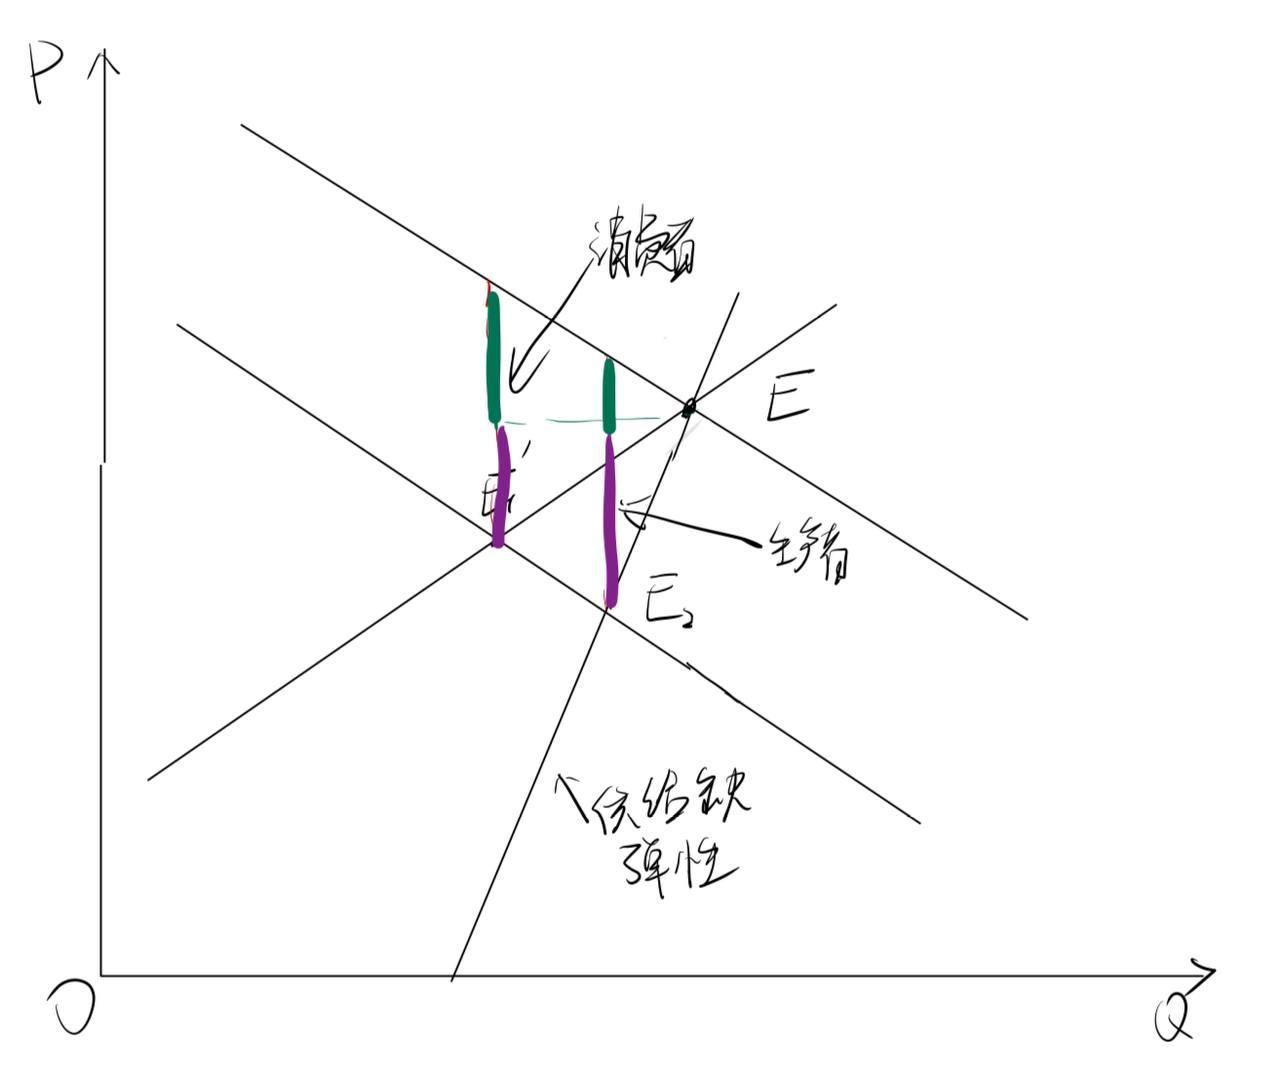 P
消费者
E
E₁'
生产者
E₂
供给缺
弹性
O
Q